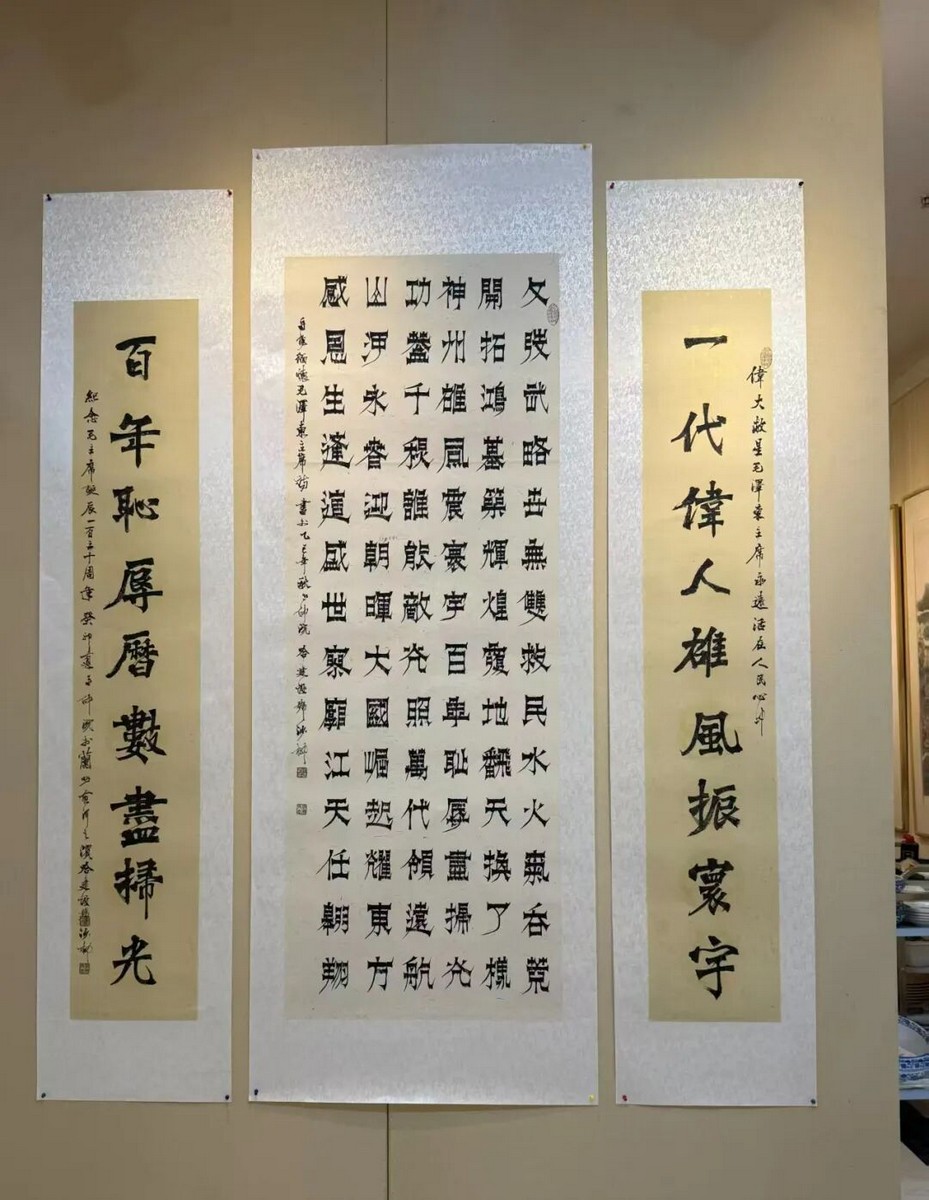 偉大救星毛澤東主席永遠活在人民心中
一代偉人雄風振寰宇
文弢武略世無雙救民水火氣吞
開拓鴻基築輝煌覆地翻天換了樣
神州雄風震寰宇百年耻辱盡掃光
功盖千秋誰能敵光照萬代領遠航
山河永春迎朝暉大國崛起耀東方
感恩生逢這盛世寥廓江天任翱翔
緬懷毛澤東主席詩 書於乙巳年秋
百年恥辱曆數盡掃光
紀念毛主席誕辰一百三十周年癸卯